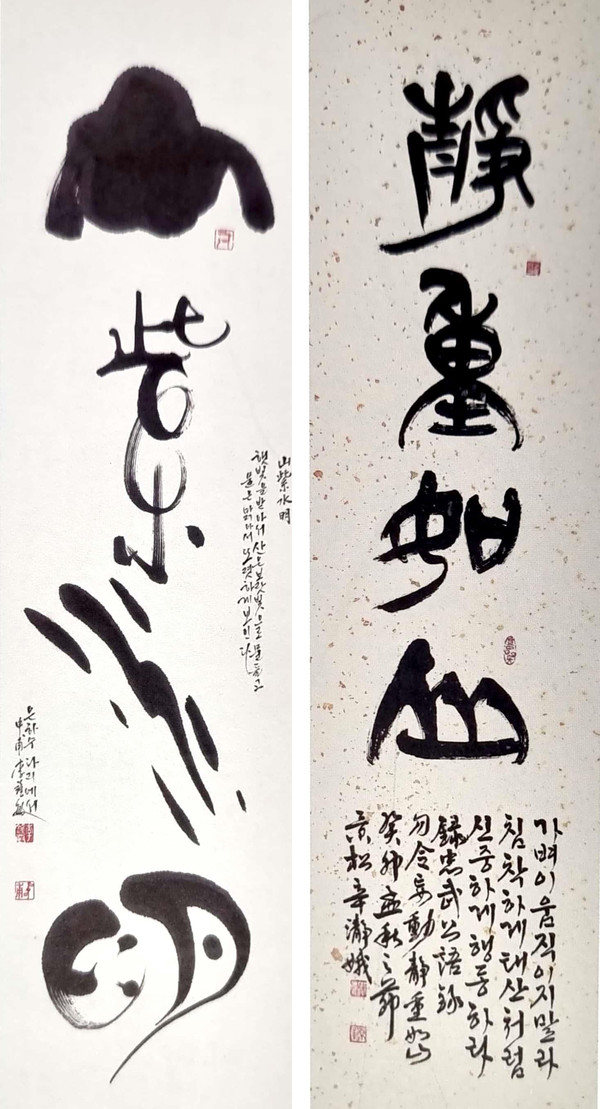 山
紫
水
明
山紫水明
햇빛을 받아서 산은 보랏빛으로 물들고
물은 맑아서 또렷하게 보인다
은하수 다리에서
靜
重
如
山
가벼이 움직이지 말라
침착하게 태산처럼
신중하게 행동하라
錄忠武公語錄
勿令妄動靜重如山
癸卯孟秋之節
景松辛瀞娥